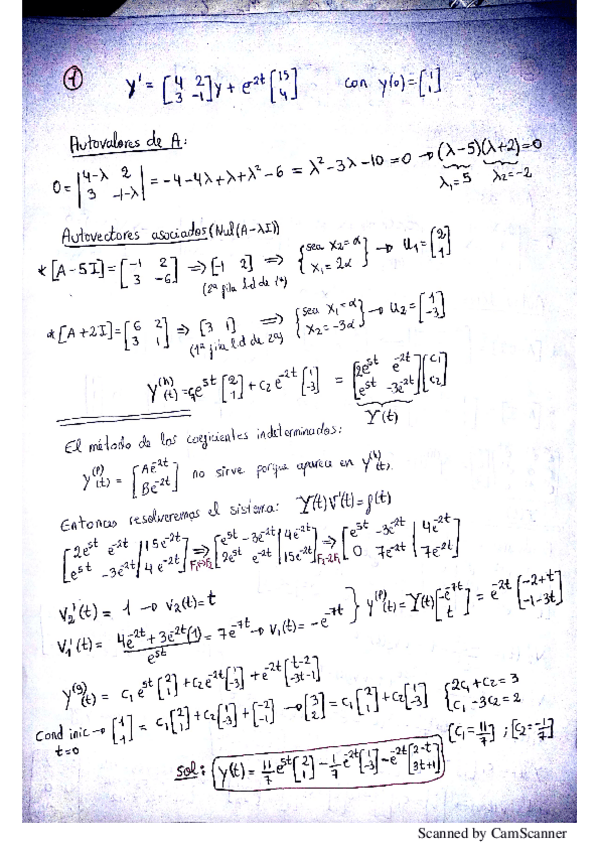 1
y' = [4 2; 3 -1] y + e^-2t [15; 4] con y(0) = [1; 1]
Autovalores de A:
0 = |4-λ 2; 3 -1-λ| = -4-4λ+λ+λ²-6 = λ²-3λ-10 = 0 → (λ-5)(λ+2)=0
λ1=5 λ2=-2
Autovectores asociados (Nul(A-λI))
* [A-5I] = [-1 2; 3 -6] ⇒ [-1 2] ⇒ {sea x2=α; x1=2α → u1=[2; 1]
(2ª fila l.d de 1ª)
* [A+2I] = [6 2; 3 1] ⇒ [3 1] ⇒ {sea x1=α; x2=-3α → u2=[1; -3]
(1ª fila l.d de 2ª)
y^(h)(t) = c1 e^5t [2; 1] + c2 e^-2t [1; -3] = [2e^5t e^-2t; e^5t -3e^-2t] [c1; c2]
Y(t)
El método de los coeficientes indeterminados:
y^(p)(t) = [Ae^-2t; Be^-2t] no sirve porque aparece en y^(h)(t).
Entonces resolveremos el sistema: Y(t)V'(t)=f(t)
[2e^5t e^-2t | 15e^-2t; e^5t -3e^-2t | 4e^-2t] ⇒ F1↔F2 [e^5t -3e^-2t | 4e^-2t; 2e^5t e^-2t | 15e^-2t] ⇒ F2-2F1 [e^5t -3e^-2t | 4e^-2t; 0 7e^-2t | 7e^-2t]
V2'(t) = 1 → V2(t)=t
V1'(t) = (4e^-2t+3e^-2t(1))/e^5t = 7e^-7t → V1(t) = -e^-7t } y^(p)(t) = Y(t)[-e^-7t; t] = e^-2t [-2+t; -1-3t]
y^(g)(t) = c1 e^5t [2; 1] + c2 e^-2t [1; -3] + e^-2t [t-2; -3t-1]
Cond inic → [1; 1] = c1 [2; 1] + c2 [1; -3] + [-2; -1] → [3; 2] = c1 [2; 1] + c2 [1; -3] {2c1+c2=3; c1-3c2=2
t=0
{c1=11/7} ; [c2=-1/7]
sol: y(t) = 11/7 e^5t [2; 1] - 1/7 e^-2t [1; -3] - e^-2t [2-t; 3t+1]
Scanned by CamScanner